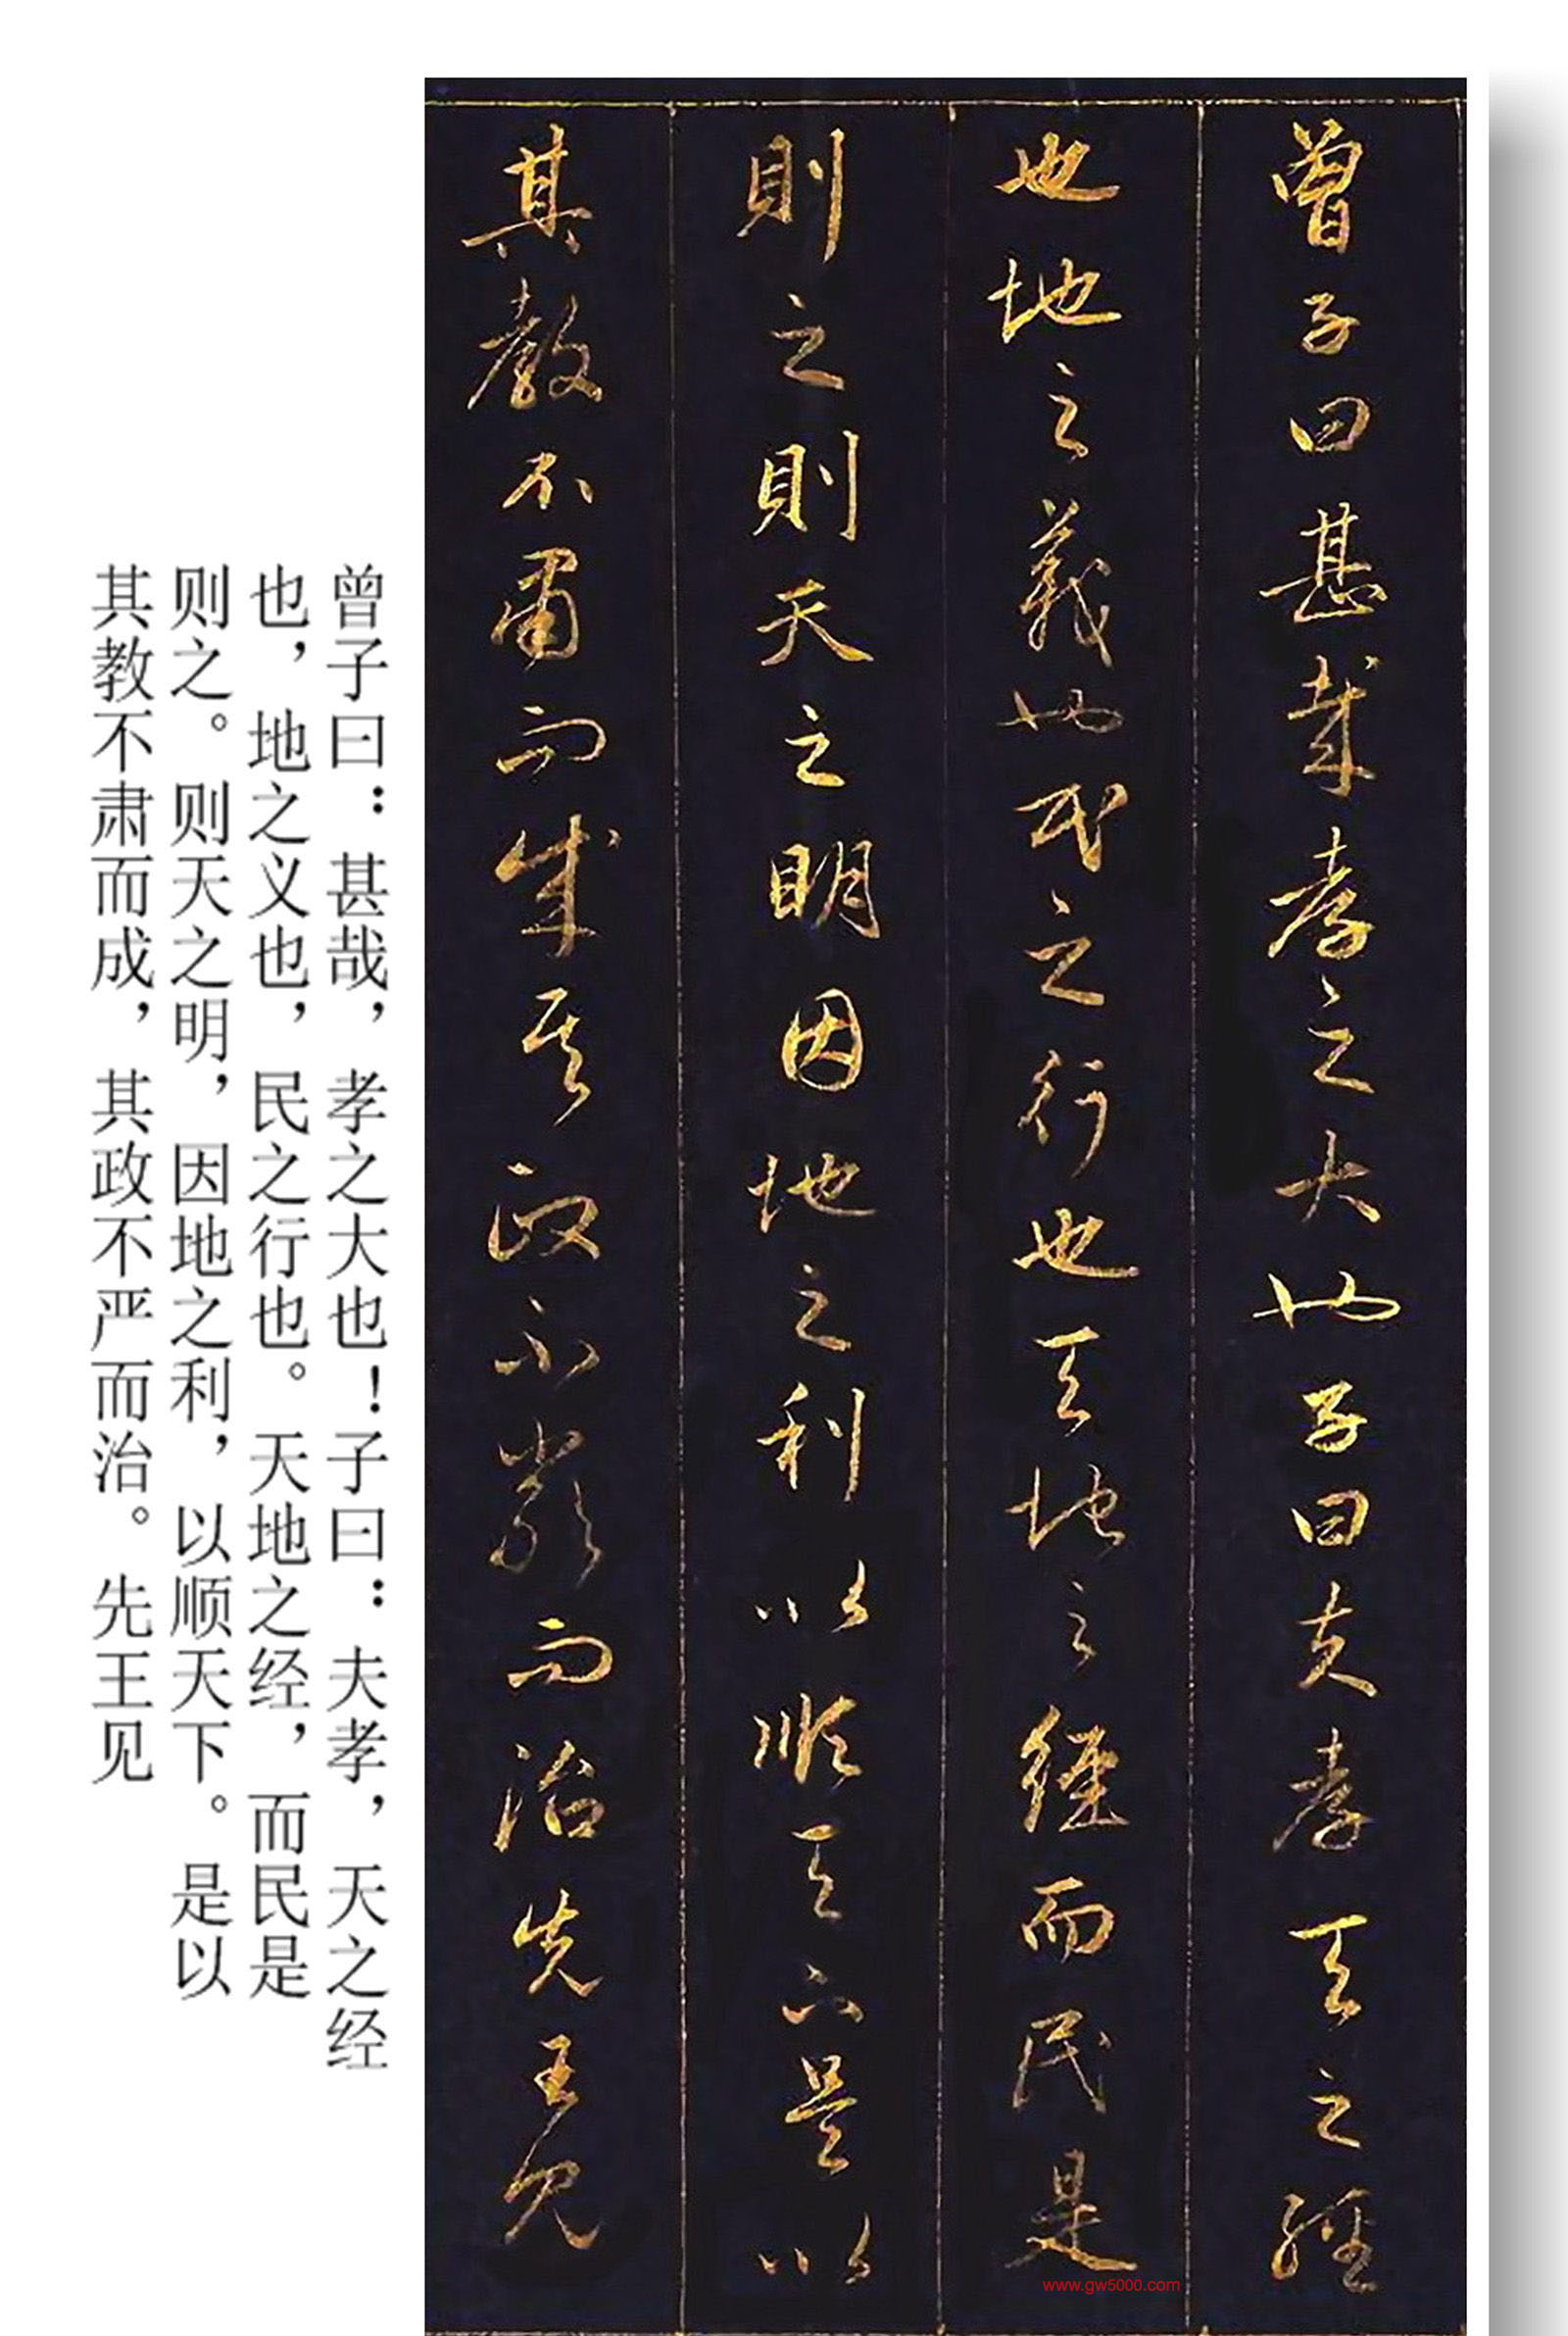 曾子曰甚哉孝之大也子曰夫孝天之經
也地之義也民之行也天地之經而民是
則之則天之明因地之利以順天下是以
其教不肅而成其政不嚴而治先王見
曾子曰：甚哉，孝之大也！子曰：夫孝，天之经
也，地之义也，民之行也。天地之经，而民是
则之。则天之明，因地之利，以顺天下。是以
其教不肃而成，其政不严而治。先王见
www.gw5000.com